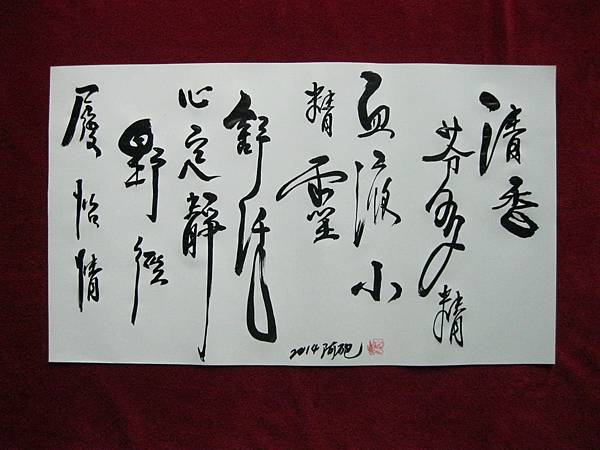 清香
芬多精
血液小
精靈
舒活
心定靜
野徑
履怡情
2014 阿砲